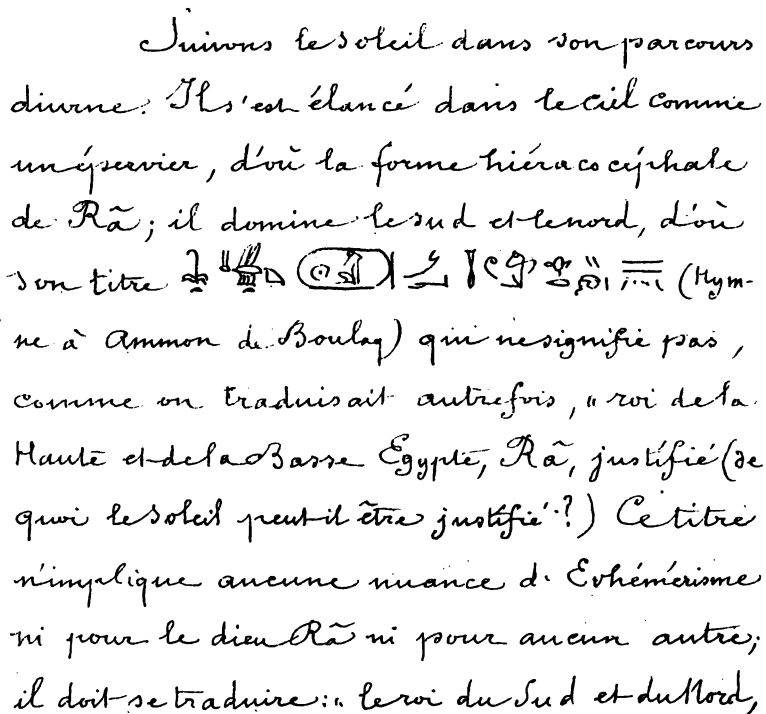 Suivons le soleil dans son parcours
diurne. Il s'est élancé dans le ciel comme
un épervier, d'où la forme hiéracocéphale
de Râ ; il domine le sud et le nord, d'où
son titre (Hym-
ne à Ammon de Boulaq) qui ne signifie pas,
comme on traduisait autrefois, " roi de la
Haute et de la Basse Egypte, Râ, justifié (de
quoi le soleil peut-il être justifié ?) Ce titre
n'implique aucune nuance d' Evhémérisme
ni pour le dieu Râ ni pour aucun autre ;
il doit se traduire : " le roi du Sud et du Nord,